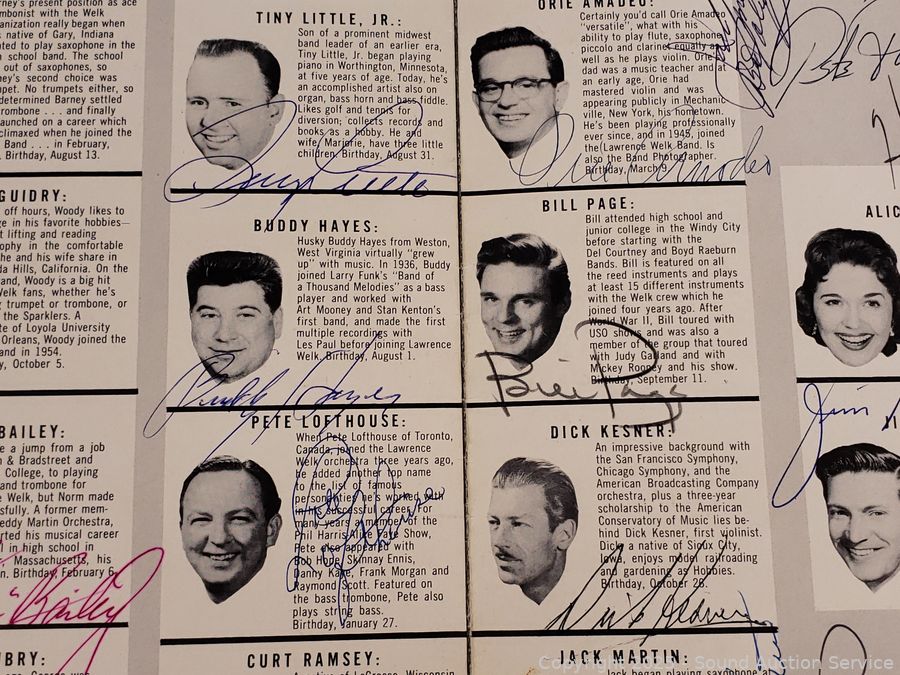 rney's present position as ace
mbonist with the Welk
anization really began when
native of Gary, Indiana
nted to play saxophone in the
school band. The school
out of saxophones, so
ney's second choice was
mpet. No trumpets either, so
determined Barney settled
trombone . . . and finally
launched on a career which
climaxed when he joined the
Band . . . in February,
Birthday, August 13.
GUIDRY:
off hours, Woody likes to
ge in his favorite hobbies—
t lifting and reading
ophy in the comfortable
he and his wife share in
da Hills, California. On the
and, Woody is a big hit
Welk fans, whether he's
g trumpet or trombone, or
the Sparklers. A
te of Loyola University
Orleans, Woody joined the
and in 1954.
y, October 5.
BAILEY:
e a jump from a job
n & Bradstreet and
College, to playing
and trombone for
e Welk, but Norm made
sfully. A former mem-
eddy Martin Orchestra,
rted his musical career
l in high school in
Massachusetts, his
n. Birthday, February 6.
"Bailey
UBRY:
TINY LITTLE, JR.:
Son of a prominent midwest
band leader of an earlier era,
Tiny Little, Jr. began playing
piano in Worthington, Minnesota,
at five years of age. Today, he's
an accomplished artist also on
organ, bass horn and bass fiddle.
Likes golf and tennis for
diversion; collects records and
books as a hobby. He and
wife, Marjorie, have three little
children. Birthday, August 31.
Tiny Little
BUDDY HAYES:
Husky Buddy Hayes from Weston,
West Virginia virtually "grew
up" with music. In 1936, Buddy
joined Larry Funk's "Band of
a Thousand Melodies" as a bass
player and worked with
Art Mooney and Stan Kenton's
first band, and made the first
multiple recordings with
Les Paul before joining Lawrence
Welk. Birthday, August 1.
Buddy Hayes
PETE LOFTHOUSE:
When Pete Lofthouse of Toronto,
Canada, joined the Lawrence
Welk orchestra three years ago,
he added another top name
to the list of famous
personalities he's worked with
in his successful career. For
many years a member of the
Phil Harris-Alice Faye Show,
Pete also appeared with
Bob Hope, Skinnay Ennis,
Danny Kaye, Frank Morgan and
Raymond Scott. Featured on
the bass trombone, Pete also
plays string bass.
Birthday, January 27.
Pete Lofthouse
CURT RAMSEY:
ORIE AMADEO:
Certainly you'd call Orie Amadeo
"versatile", what with his
ability to play flute, saxophone,
piccolo and clarinet equally as
well as he plays violin. Orie's
dad was a music teacher and at
an early age, Orie had
mastered violin and was
appearing publicly in Mechanic
ville, New York, his hometown.
He's been playing professionally
ever since, and in 1945, joined
the Lawrence Welk Band. Is
also the Band Photographer.
Birthday, March 9.
Orie Amadeo
BILL PAGE:
Bill attended high school and
junior college in the Windy City
before starting with the
Del Courtney and Boyd Raeburn
Bands. Bill is featured on all
the reed instruments and plays
at least 15 different instruments
with the Welk crew which he
joined four years ago. After
World War II, Bill toured with
USO shows and was also a
member of the group that toured
with Judy Garland and with
Mickey Rooney and his show.
Birthday, September 11.
Bill Page
DICK KESNER:
An impressive background with
the San Francisco Symphony,
Chicago Symphony, and the
American Broadcasting Company
orchestra, plus a three-year
scholarship to the American
Conservatory of Music lies be-
hind Dick Kesner, first violinist.
Dick, a native of Sioux City,
Iowa, enjoys model railroading
and gardening as Hobbies.
Birthday, October 26.
Dick Kesner
JACK MARTIN:
Jack began playing saxophone at
ALIC
Jim
JI
Copyright 2023 - Sound Auction Service